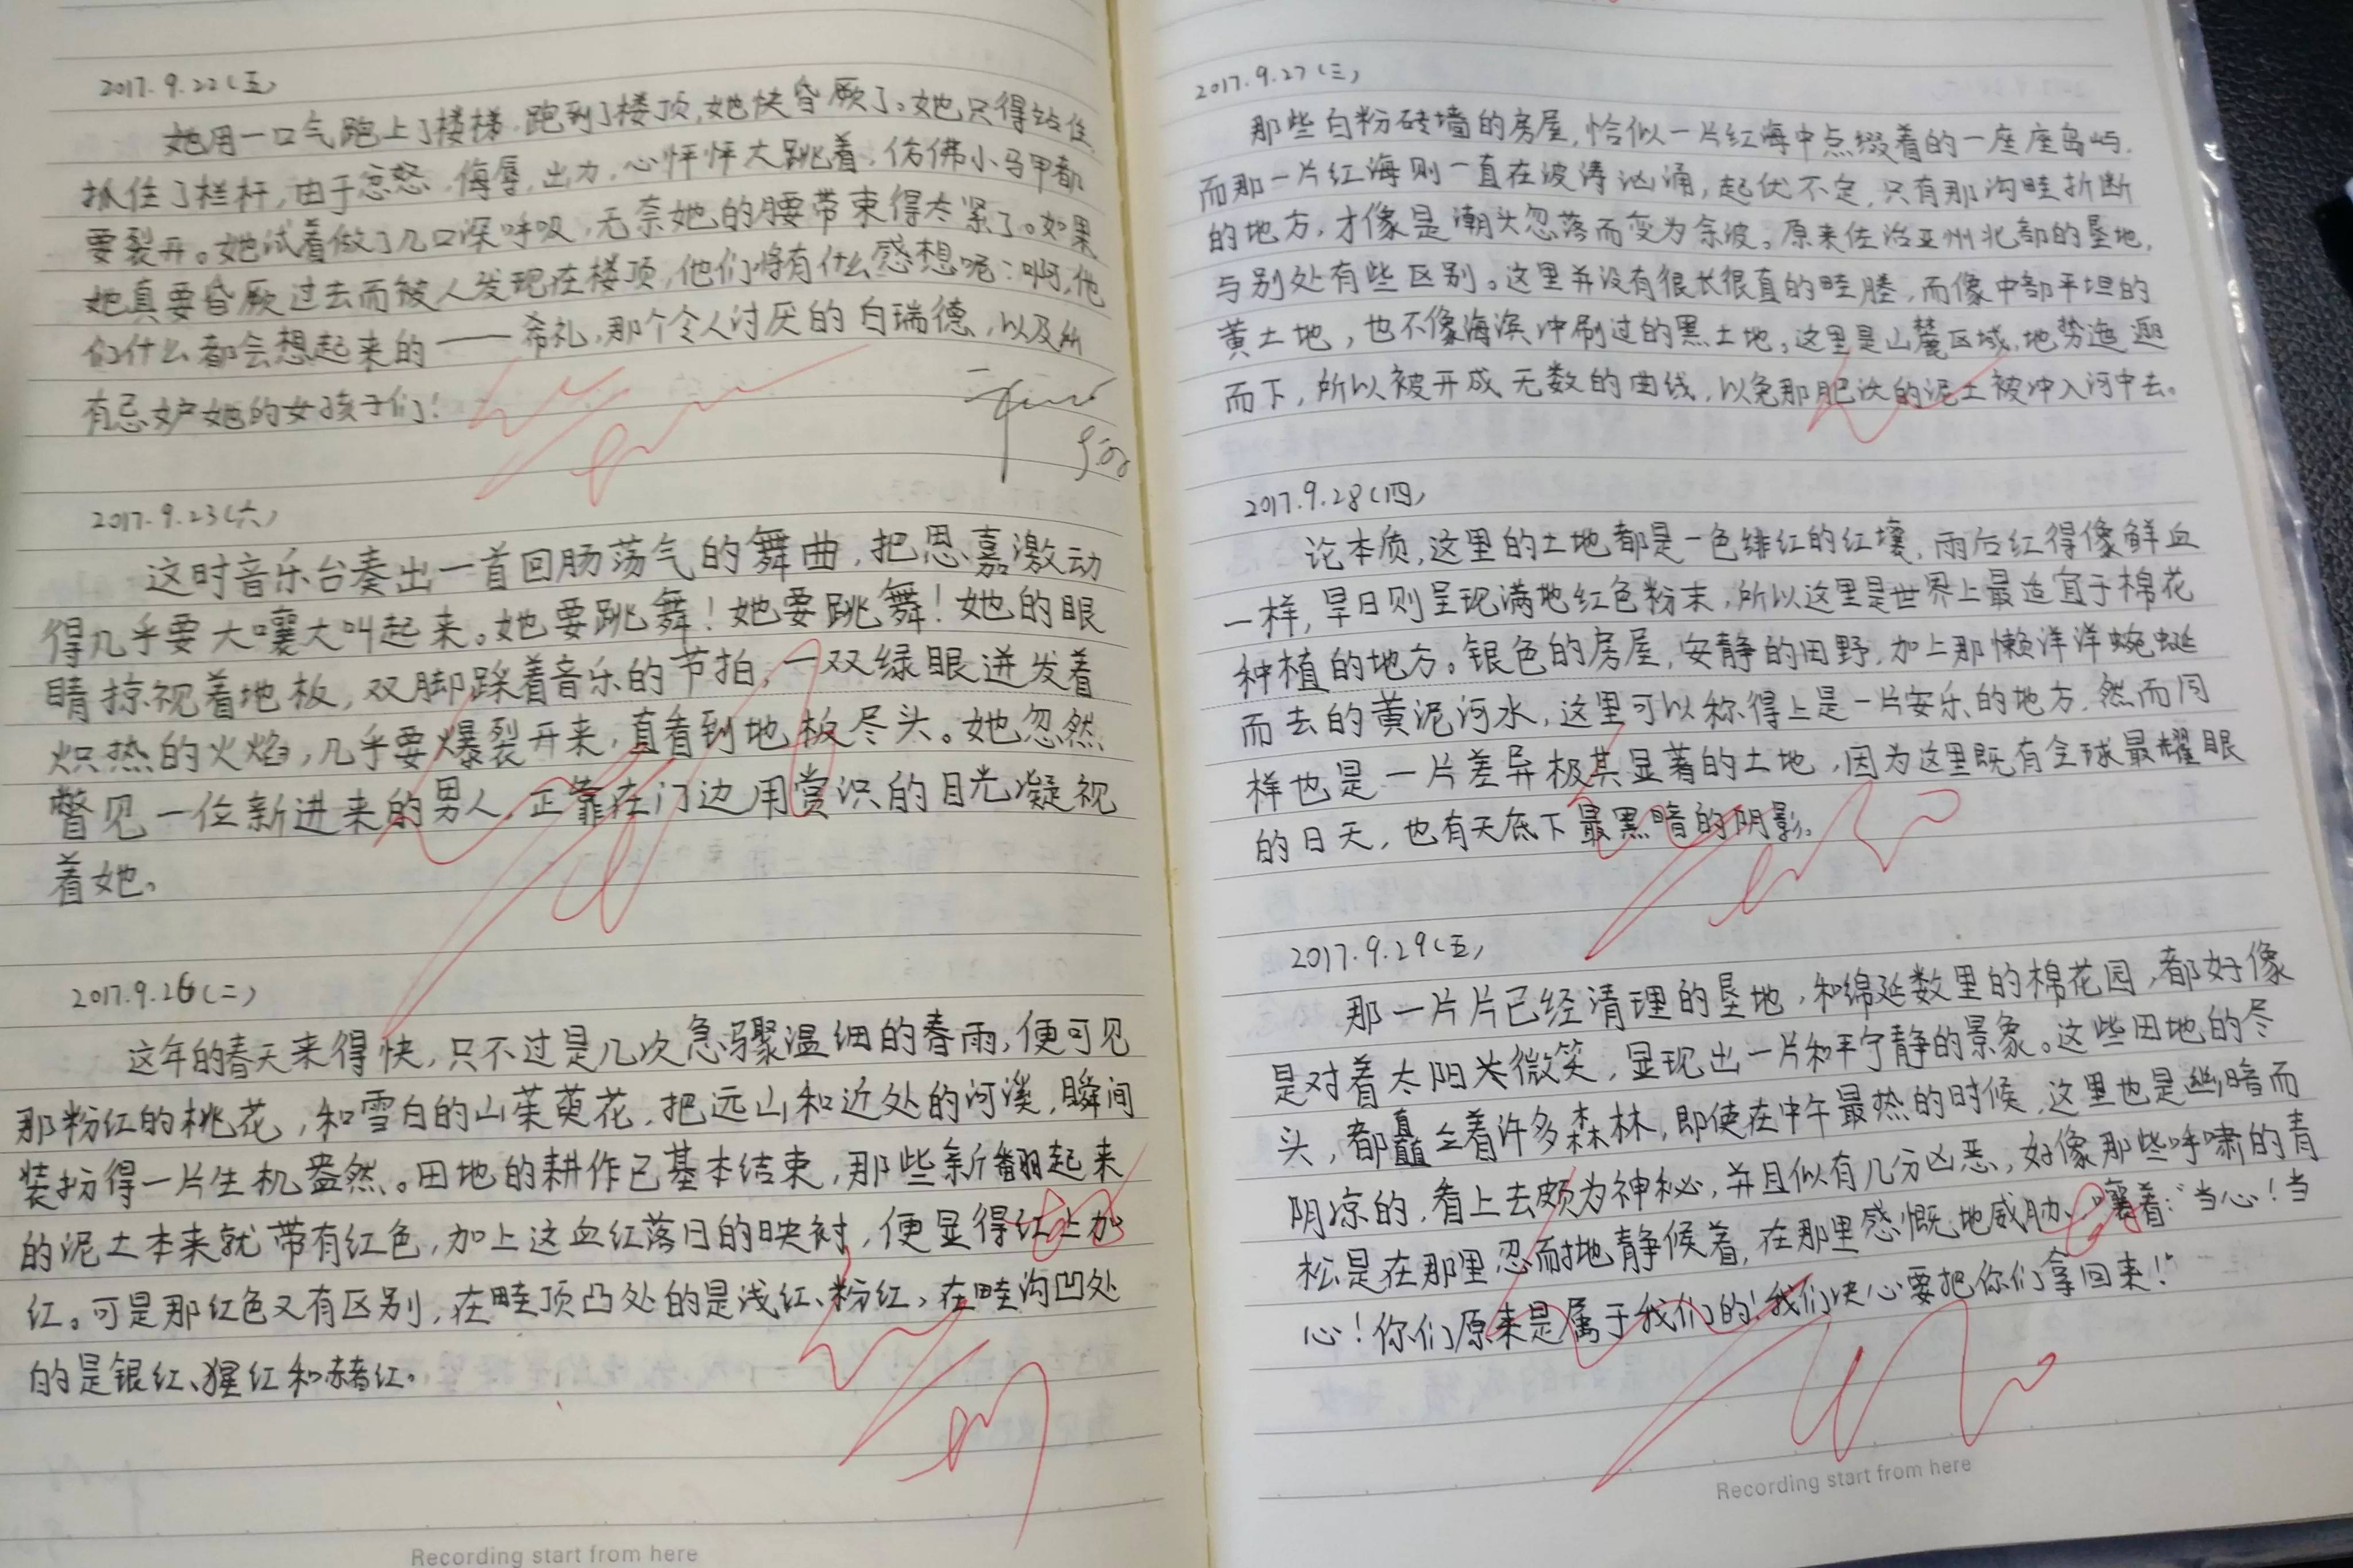 2017.9.22(五)
她用一口气跑上了楼梯,跑到了楼顶,她快昏厥了。她只得站住,
抓住了栏杆,由于忿怒,侮辱,出力,心怦怦大跳着,仿佛小马甲都
要裂开。她试着做了几口深呼吸,无奈她的腰带束得太紧了。如果
她真要昏厥过去而被人发现在楼顶,他们将有什么感想呢:啊,他
们什么都会想起来的——希礼,那个令人讨厌的白瑞德,以及所
有忌妒她的女孩子们!
2017.9.23(六)
这时音乐台奏出一首回肠荡气的舞曲,把思嘉激动
得几乎要大嚷大叫起来。她要跳舞!她要跳舞!她的眼
睛掠视着地板,双脚踩着音乐的节拍,一双绿眼迸发着
炽热的火焰,几乎要爆裂开来,直看到地板尽头。她忽然
瞥见一位新进来的男人,正靠在门边用赏识的目光凝视
着她。
2017.9.26(二)
这年的春天来得快,只不过是几次急骤温细的春雨,便可见
那粉红的桃花,和雪白的山茱萸花,把远山和近处的河溪,瞬间
装扮得一片生机盎然。田地的耕作已基本结束,那些新翻起来
的泥土本来就带有红色,加上这血红落日的映衬,便显得红上加
红。可是那红色又有区别,在畦顶凸处的是浅红、粉红,在畦沟凹处
的是银红、猩红和赭红。
Recording start from here
2017.9.27(三)
那些白粉砖墙的房屋,恰似一片红海中点缀着的一座座岛屿,
而那一片红海则一直在波涛汹涌,起伏不定,只有那沟畦折断
的地方,才像是潮头忽落而变为余波。原来佐治亚州北部的垦地,
与别处有些区别。这里并没有很长很直的畦塍,而像中部平坦的
黄土地,也不像海滨冲刷过的黑土地,这里是山麓区域,地势迤逦
而下,所以被开成无数的曲线,以免那肥沃的泥土被冲入河中去。
2017.9.28(四)
论本质,这里的土地都是一色绯红的红壤,雨后红得像鲜血
一样,旱日则呈现满地红色粉末,所以这里是世界上最适宜于棉花
种植的地方。银色的房屋,安静的田野,加上那懒洋洋蜿蜒
而去的黄泥河水,这里可以称得上是一片安乐的地方,然而同
样也是一片差异极其显著的土地,因为这里既有全球最耀眼
的日天,也有天底下最黑暗的阴影。
2017.9.29(五)
那一片片已经清理的垦地,和绵延数里的棉花园,都好像
是对着太阳光微笑,显现出一片和平宁静的景象。这些田地的尽
头,都矗立着许多森林,即使在中午最热的时候,这里也是幽暗而
阴凉的,看上去颇为神秘,并且似有几分凶恶,好像那些呼啸的青
松是在那里忍耐地静候着,在那里感慨地威胁、嚷着:“当心!当
心!你们原来是属于我们的!我们决心要把你们拿回来!”
Recording start from here